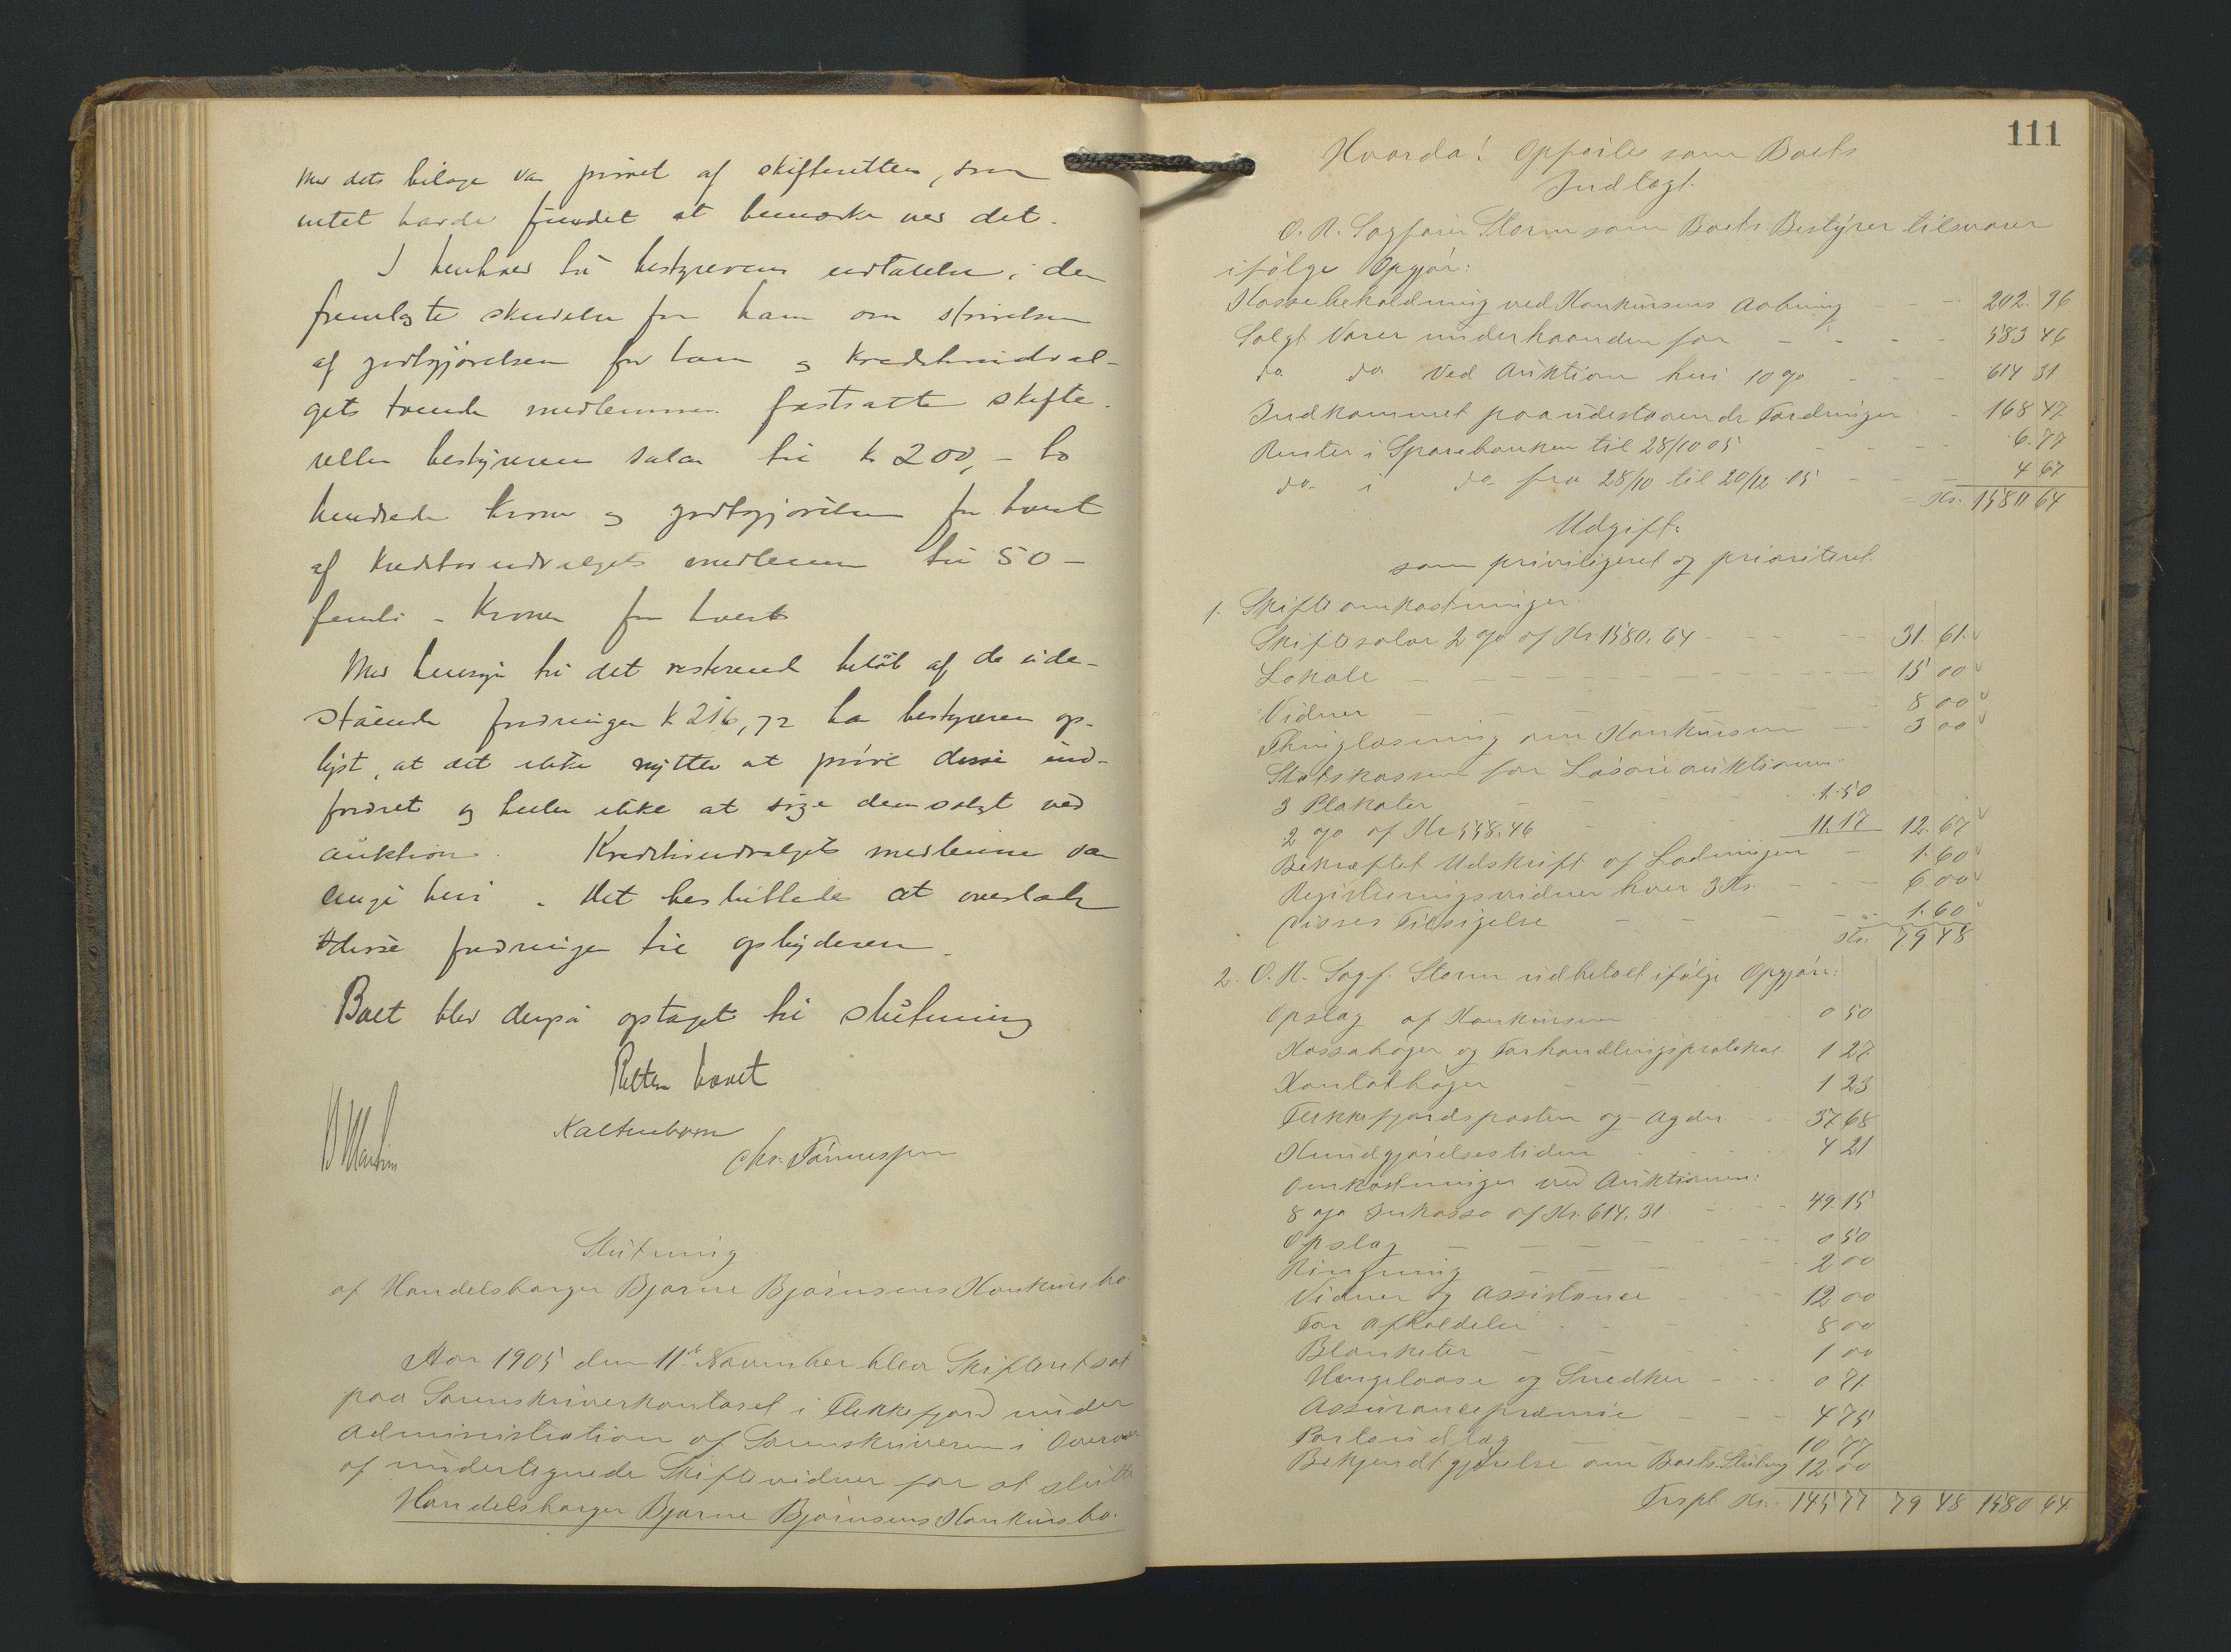 med dets bilage var prøvet af skifteretten, som
intet havde fundet at bemærke ved det.
I henhold til bestyrerens udtalelse i den
fremlagte skrivelse fra ham om størrelsen
af godtgjørelsen for ham og kreditorudval-
gets tvende medlemmer fastsatte skifte-
retten bestyrerens salær til kr 200,- to
hundrede kroner og godtgjørelsen for hvert
af kreditorudvalgets medlemmer til 50 -
femti - Kroner for hvert
Med hensyn til det resterende beløb af de ude-
stående fordringer k 216,72 har bestyreren op-
lyst, at det ikke nytter at prøve disse ind-
fordret og heller ikke at søge dem solgt ved
auktion. Kreditorudvalgets medlemmer var
enige heri. Det besluttedes at overlade
disse fordringer til opbyderen.
Boet blev derpå optaget til slutning
Retten hævet
Kaltenborn
Chr. Tønnessen
Slutning
af Handelsborger Bjarne Bjørnsens Konkursbo.
Aar 1905 den 11te November blev Skifteret sat
paa Sorenskriverkontoret i Flekkefjord under
Administration af Sorenskriveren i Overvær
af undertegnede Skiftevidner for at slutte
Handelsborger Bjarne Bjørnsens Konkursbo.
111
Hvorda! Opføres som Boets
Indtægt.
O. R. Sagfører Storm som Boets Bestyrer tilsvarer
ifølge Opgjør:
Kassebeholdning ved Konkursens Aabning - - - 202. 96
Solgt Varer underhaanden for - - - - 583 46
do do ved Auktion heri 10 % - - - 614 31
Indkommet paa udestaaende Fordringer - 168 47
Renter i Sparebanken til 28/10 05 - - - 6. 77
do i do fra 28/10 til 20/12 05 - - - 4 67
Kr. 1580 64
Udgift:
som priviligeret og prioriteret.
1. Skifteomkostninger:
Skiftesalær 2 % af Kr 1580,64 - - - 31. 61.
Lokale - - - 15 00
Vidner - - - 8 00
Thinglæsning om Konkursen - - 3 00
Statskassen for Løsøreauktionen:
3 Plakater - - - 1.50
2 % af Kr 558.46 - - 11.17 12. 67
Bekræftet Udskrift af Ladningen - 1. 60
Registreringsvidner hver 3 Kr. - - - 6. 00
Disses Tilsigelse - - - - 1. 60
Kr. 79 48
2. O. R. Sagf. Storm udbetalt ifølge Opgjør:
Opslag af Konkursen 0 50
Kassabøger og Forhandlingsprotokol 1 27
Kontobøger - - 1 23
Flekkefjordsposten og Agder - - 37 68
Kundgjørelsestidende - - 4 21
Omkostninger ved Auktionen:
8 % Inkasso af Kr. 614,31 - - 49. 15
Opslag - - - 0 50
Ringning - - - 2 00
Vidner og Assistance - - 12 00
For Afholdelse - - 8 00
Blanketer - - 1 00
Hængelaase og Snedker - - 0 71
Assurancepræmie - - 4 75
Portoudlæg - - 10 77
Bekjendtgjørelse om Boets Slutning 12. 00
Trspt Kr. 145 77 79 48 1580 64